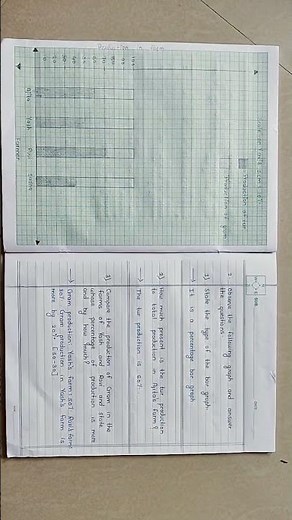 Production of tur
Production of gram
100
90
80
70
60
50
40
30
20
10
0
Ajita
Yash
Ravi
Farmer
2. Observe the following graph and answer
the questions
1) State the type of the bar graph.
→ It is a percentage bar graph
2) How much percent is the tur production
to total production in Ajita's farm?
→ The tur production is 60%
3) Compare the production of Gram in the
farms of Yash and Ravi and state
whose percentage of production is more
and by how much?
→ Gram production: Yash's farm 50% Ravi's farm
30%. Gram production in Yash's farm is
more by 20%. [50-30]